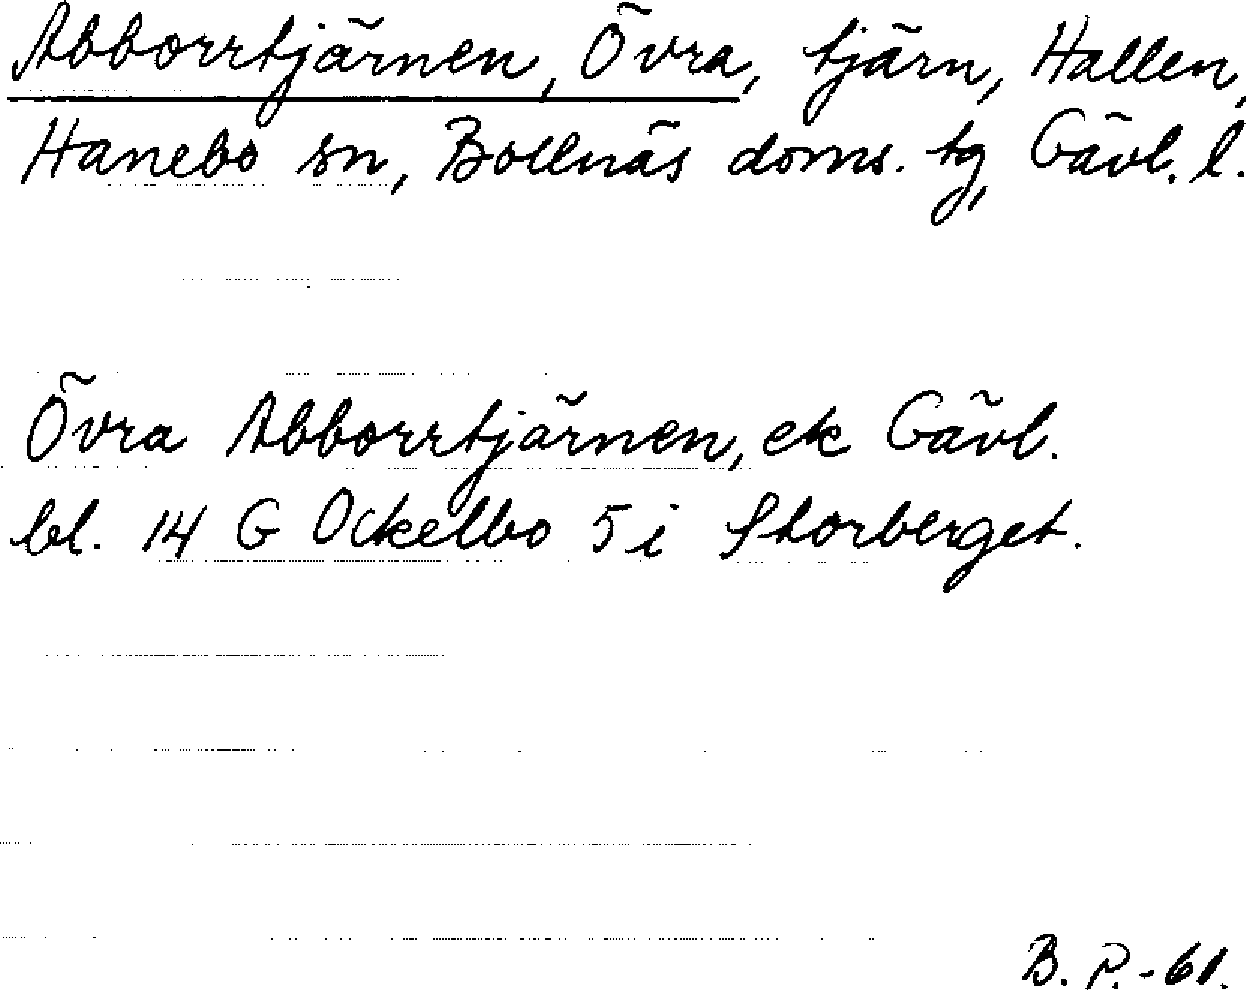 Abborrtjärnen, Övra, tjärn, Hallen,
Hanebo sn, Bollnäs doms. tg, Gävl. l.
Övra Abborrtjärnen, ek Gävl.
bl. 14 G Ockelbo 5 i Storberget.
B. P. -61.